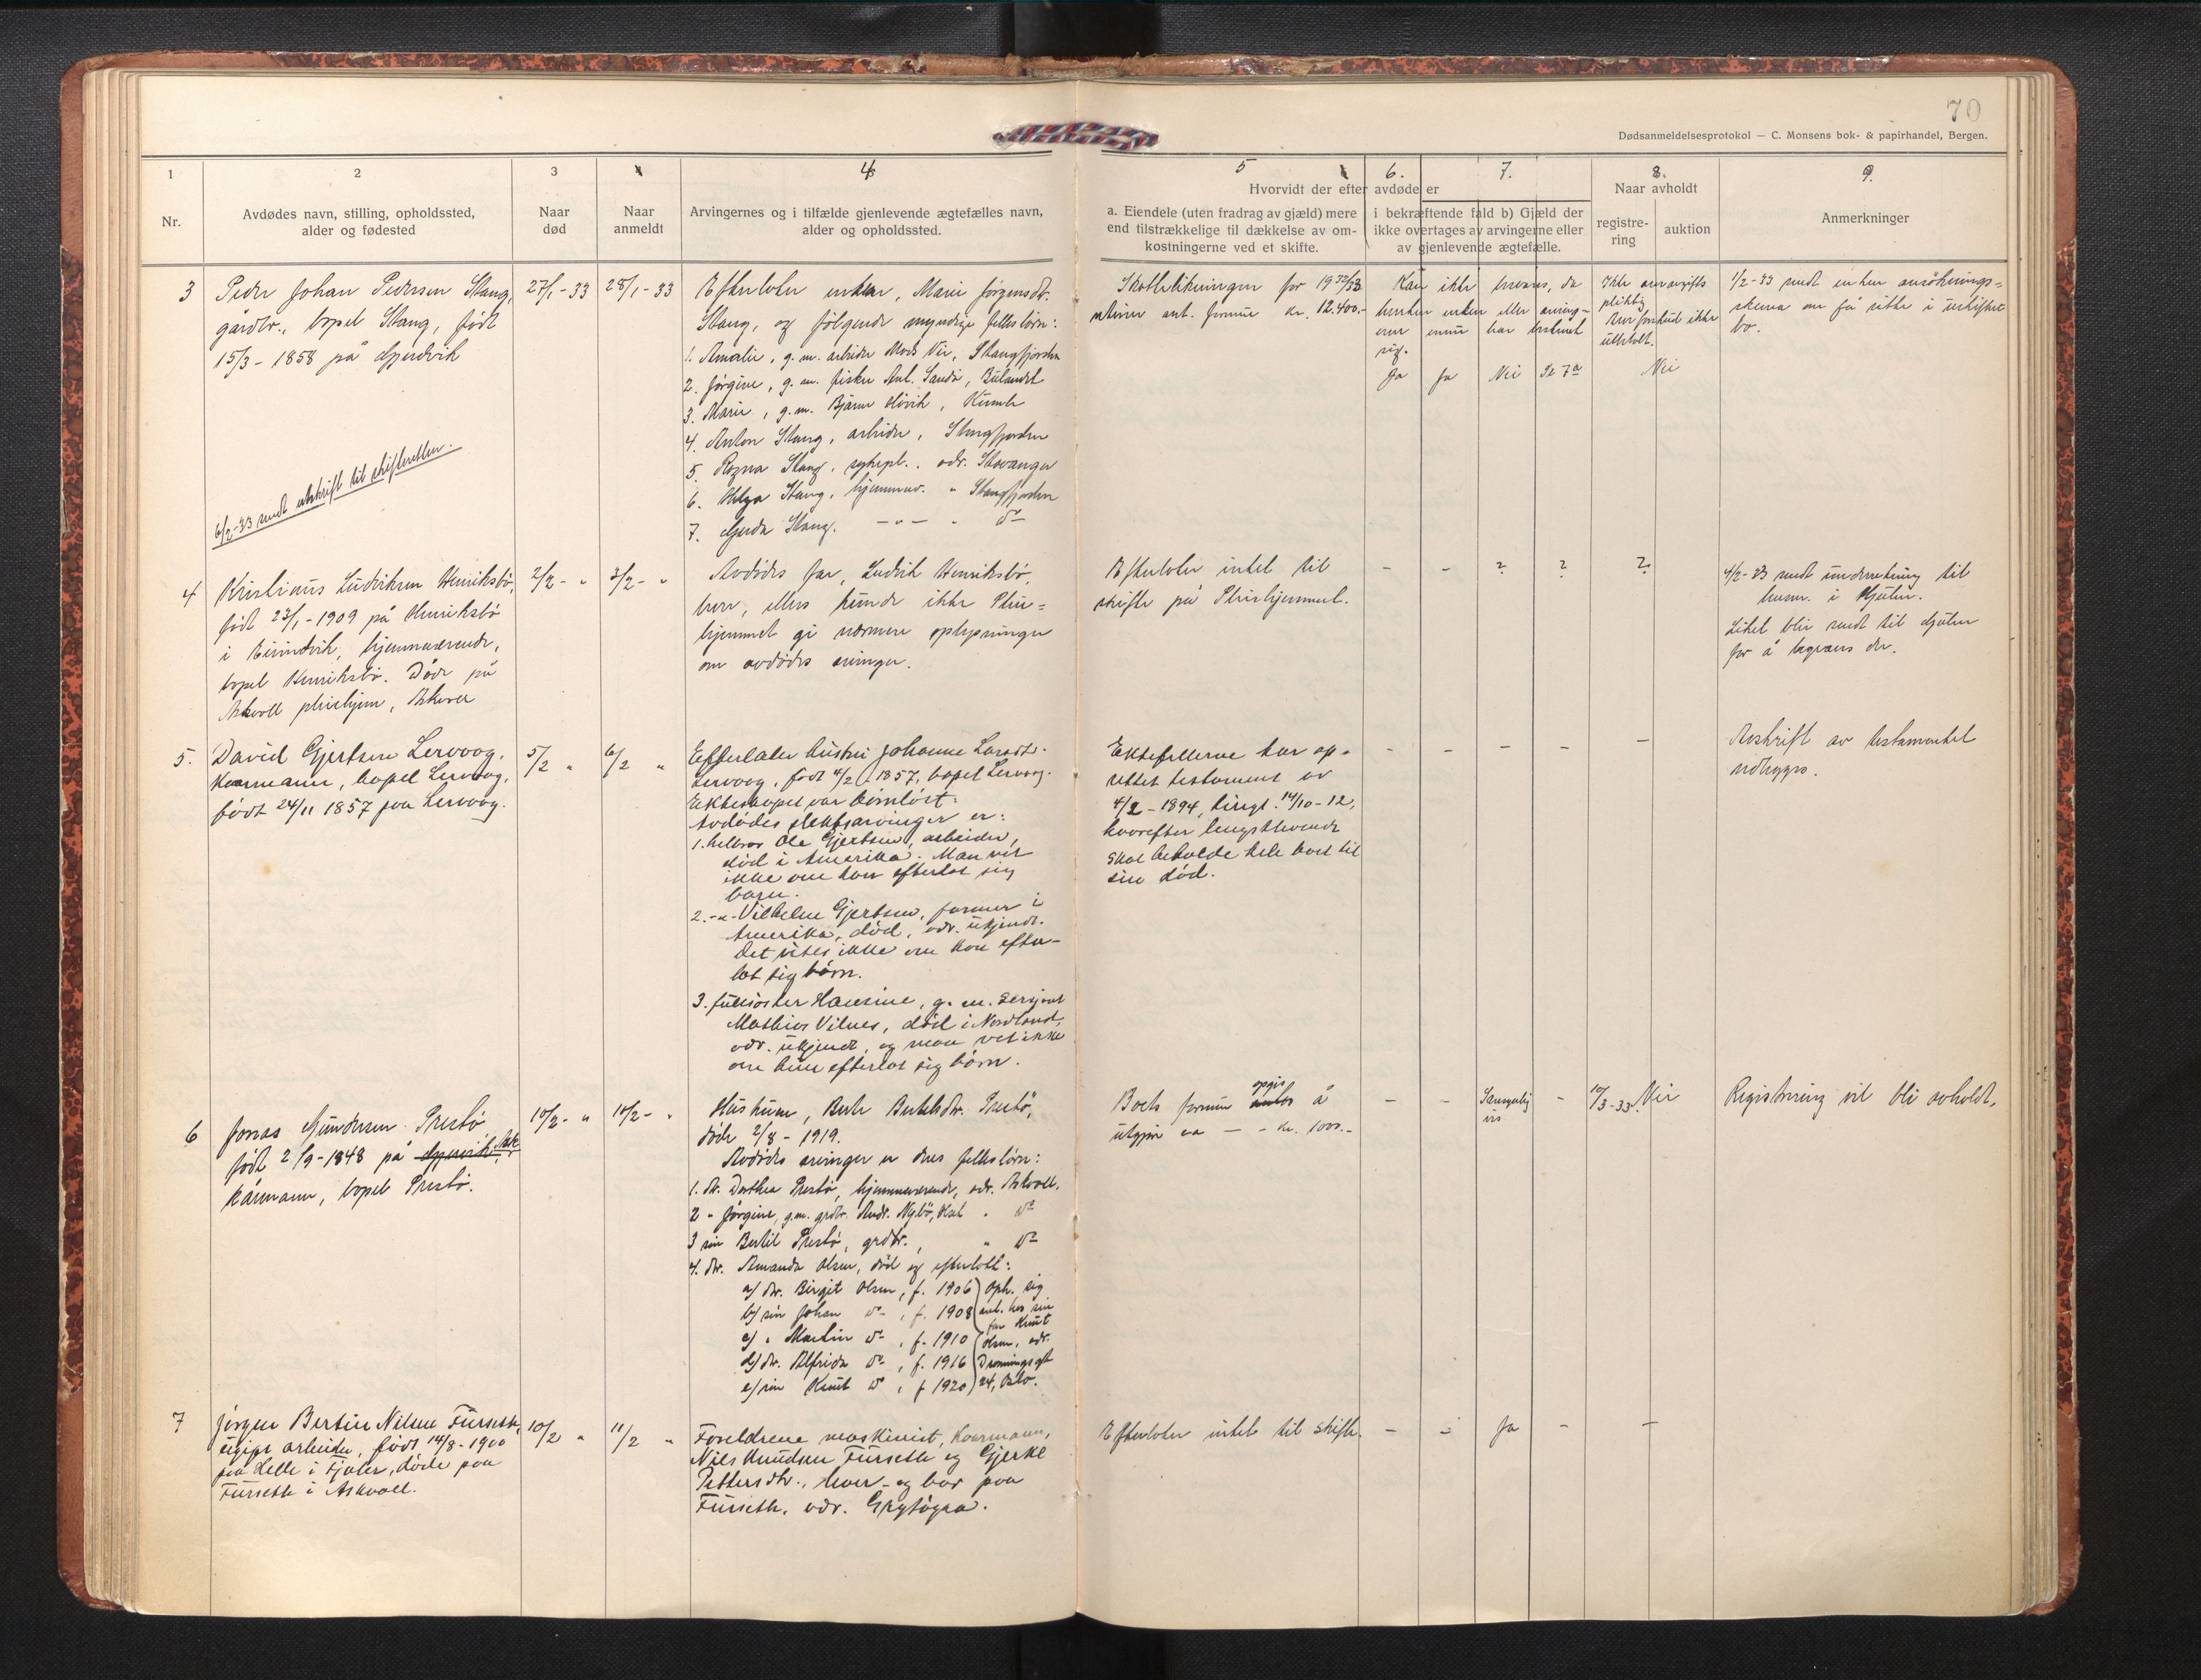 70
Dødsanmeldelsesprotokol — C. Monsens bok- & papirhandel, Bergen.
1
2
3
4
5
6.
7.
8.
9.
Nr.
Avdødes navn, stilling, opholdssted,
alder og fødested
Naar
død
Naar
anmeldt
Arvingernes og i tilfælde gjenlevende ægtefælles navn,
alder og opholdssted.
Hvorvidt der efter avdøde er
a. Eiendele (uten fradrag av gjæld) mere
end tilstrækkelige til dækkelse av om-
kostningerne ved et skifte.
i bekræftende fald b) Gjæld der
ikke overtages av arvingerne eller
av gjenlevende ægtefælle.
Naar avholdt
registre-
ring
auktion
Anmerkninger
3
Peder Johan Pedersen Stang,
gårdbr., bopel Stang, født
15/3 - 1858 på Gjerdvik
6/2-33 sendt utskrift til skifteretten.
27/1 - 33
28/1 - 33
Efterlater enken, Marie Jørgensdtr.
Stang, og følgende myndige fellesbørn:
1. Amalie, g.m. arbeider Mads Vie, Stangfjorden
2. Jørgine, g.m. fisker Ant. Sandø, Bulandet
3. Marie, g.m. Bjarne Høvik, Kumle
4. Anton Stang, arbeider, Stangfjorden
5. Ragna Stang, sykepl., adr. Stavanger
6. Helga Stang, hjemmev. " Stangfjorden
7. Gjerda Stang. -"- " do
Skatteligningen for 1932/33
utviser ant. formue kr. 12.400.-
Kan ikke besvares, da
hverken enken eller arving-
erne ennu har erklært
sig.
Ja
Ja
Nei
Se 7a
Ikke arveavgifts
pliktig
Arveforskud ikke
utbetalt.
Nei
1/2-33 sendt enken ansøknings-
skema om få sitte i uskiftet
bo.
4
Kristianus Ludviksen Henriksbø,
født 23/1 - 1909 på Henriksbø
i Eivindvik, hjemmeværende,
bopel Henriksbø. Døde på
Askvoll pleiehjem, Askvoll
2/2 - "
3/2 - "
Avdødes far, Ludvik Henriksbø,
lever, ellers kunde ikke Pleie=
hjemmet gi nærmere oplysninger
om avdødes arvinger.
Efterlater intet til
skifte på Pleiehjemmet.
-
-
?
?
?
4/2-33 sendt underretning til
lensm. i Gulen.
Liket blir sendt til Gulen
for å begraves der.
5.
David Gjertsen Lervaag,
Kaarmann, bopel Lervaag,
født 24/11 1857 paa Lervaag.
5/2 "
6/2 "
Efterlater hustru Johanne Larsdtr.
Lervaag, født 4/2 1857, bopel Lervaag.
Ekteskapet var barnløst.
Avdødes slektsarvinger er:
1. helbror Ole Gjertsen, arbeider,
død i Amerika. Man vet
ikke om han efterlot sig
barn.
2. -"- Vilhelm Gjertsen, farmer i
Amerika, død, adr. ukjendt.
Det vites ikke om han efter-
lot sig børn.
3. fullsøster Hansine, g.m. sersjant
Mathias Vilnes, død i Nordland,
adr. ukjendt, og man vet ikke
om hun efterlot sig børn.
Ektefellerne har op-
rettet testament av
4/2 - 1894, tingl. 14/10 - 12,
hvorefter lengstlevende
skal beholde hele boet til
sin død.
-
-
-
-
-
Avskrift av testamentet
vedlegges.
6
Jonas Gundersen Prestø
født 2/9 - 1848 på Gjervik, Ask.
kårmann, bopel Prestø.
10/2 - "
10/2 - "
Hustruen, Berte Bertelsdtr. Prestø,
døde 2/8 - 1919.
Avdødes arvinger er deres fellesbørn:
1. dr. Dorthea Prestø, hjemmeværende, adr. Askvoll.
2 " Jørgine, g.m. grdbr. Andr. Nybø, " do
3 søn Bertil Prestø, grdbr., " do
4. dr. Amanda Olsen, død og efterlatt:
a) dr. Birgit Olsen, f. 1906
b) søn Johan do , f. 1908
c) " Martin do , f. 1910
d) dr. Alfrida do , f. 1916
e) søn Knut do , f 1920
Oph. sig
ant. hos sin
far Knut
Olsen, adr.
Dronningsgt
24, Oslo.
Boets formue opgis å
utgjøre ca — - kr. 1000.-
-
-
Sansynlig
vis
-
10/3-33.
Nei
Registrering vil bli avholdt.
7
Jørgen Bertin Nilsen Furseth,
ugift arbeider, født 14/8 - 1900
paa Helle i Fjaler, døde paa
Furseth i Askvoll.
10/2 "
11/2 "
Foreldrene maskinist, Kaarmann,
Nils Knudsen Furseth og Gjerke
Pettersdtr., lever og bor paa
Furseth, adr. Grytøyra.
Efterlater intet til skifte.
-
-
Ja
-
-